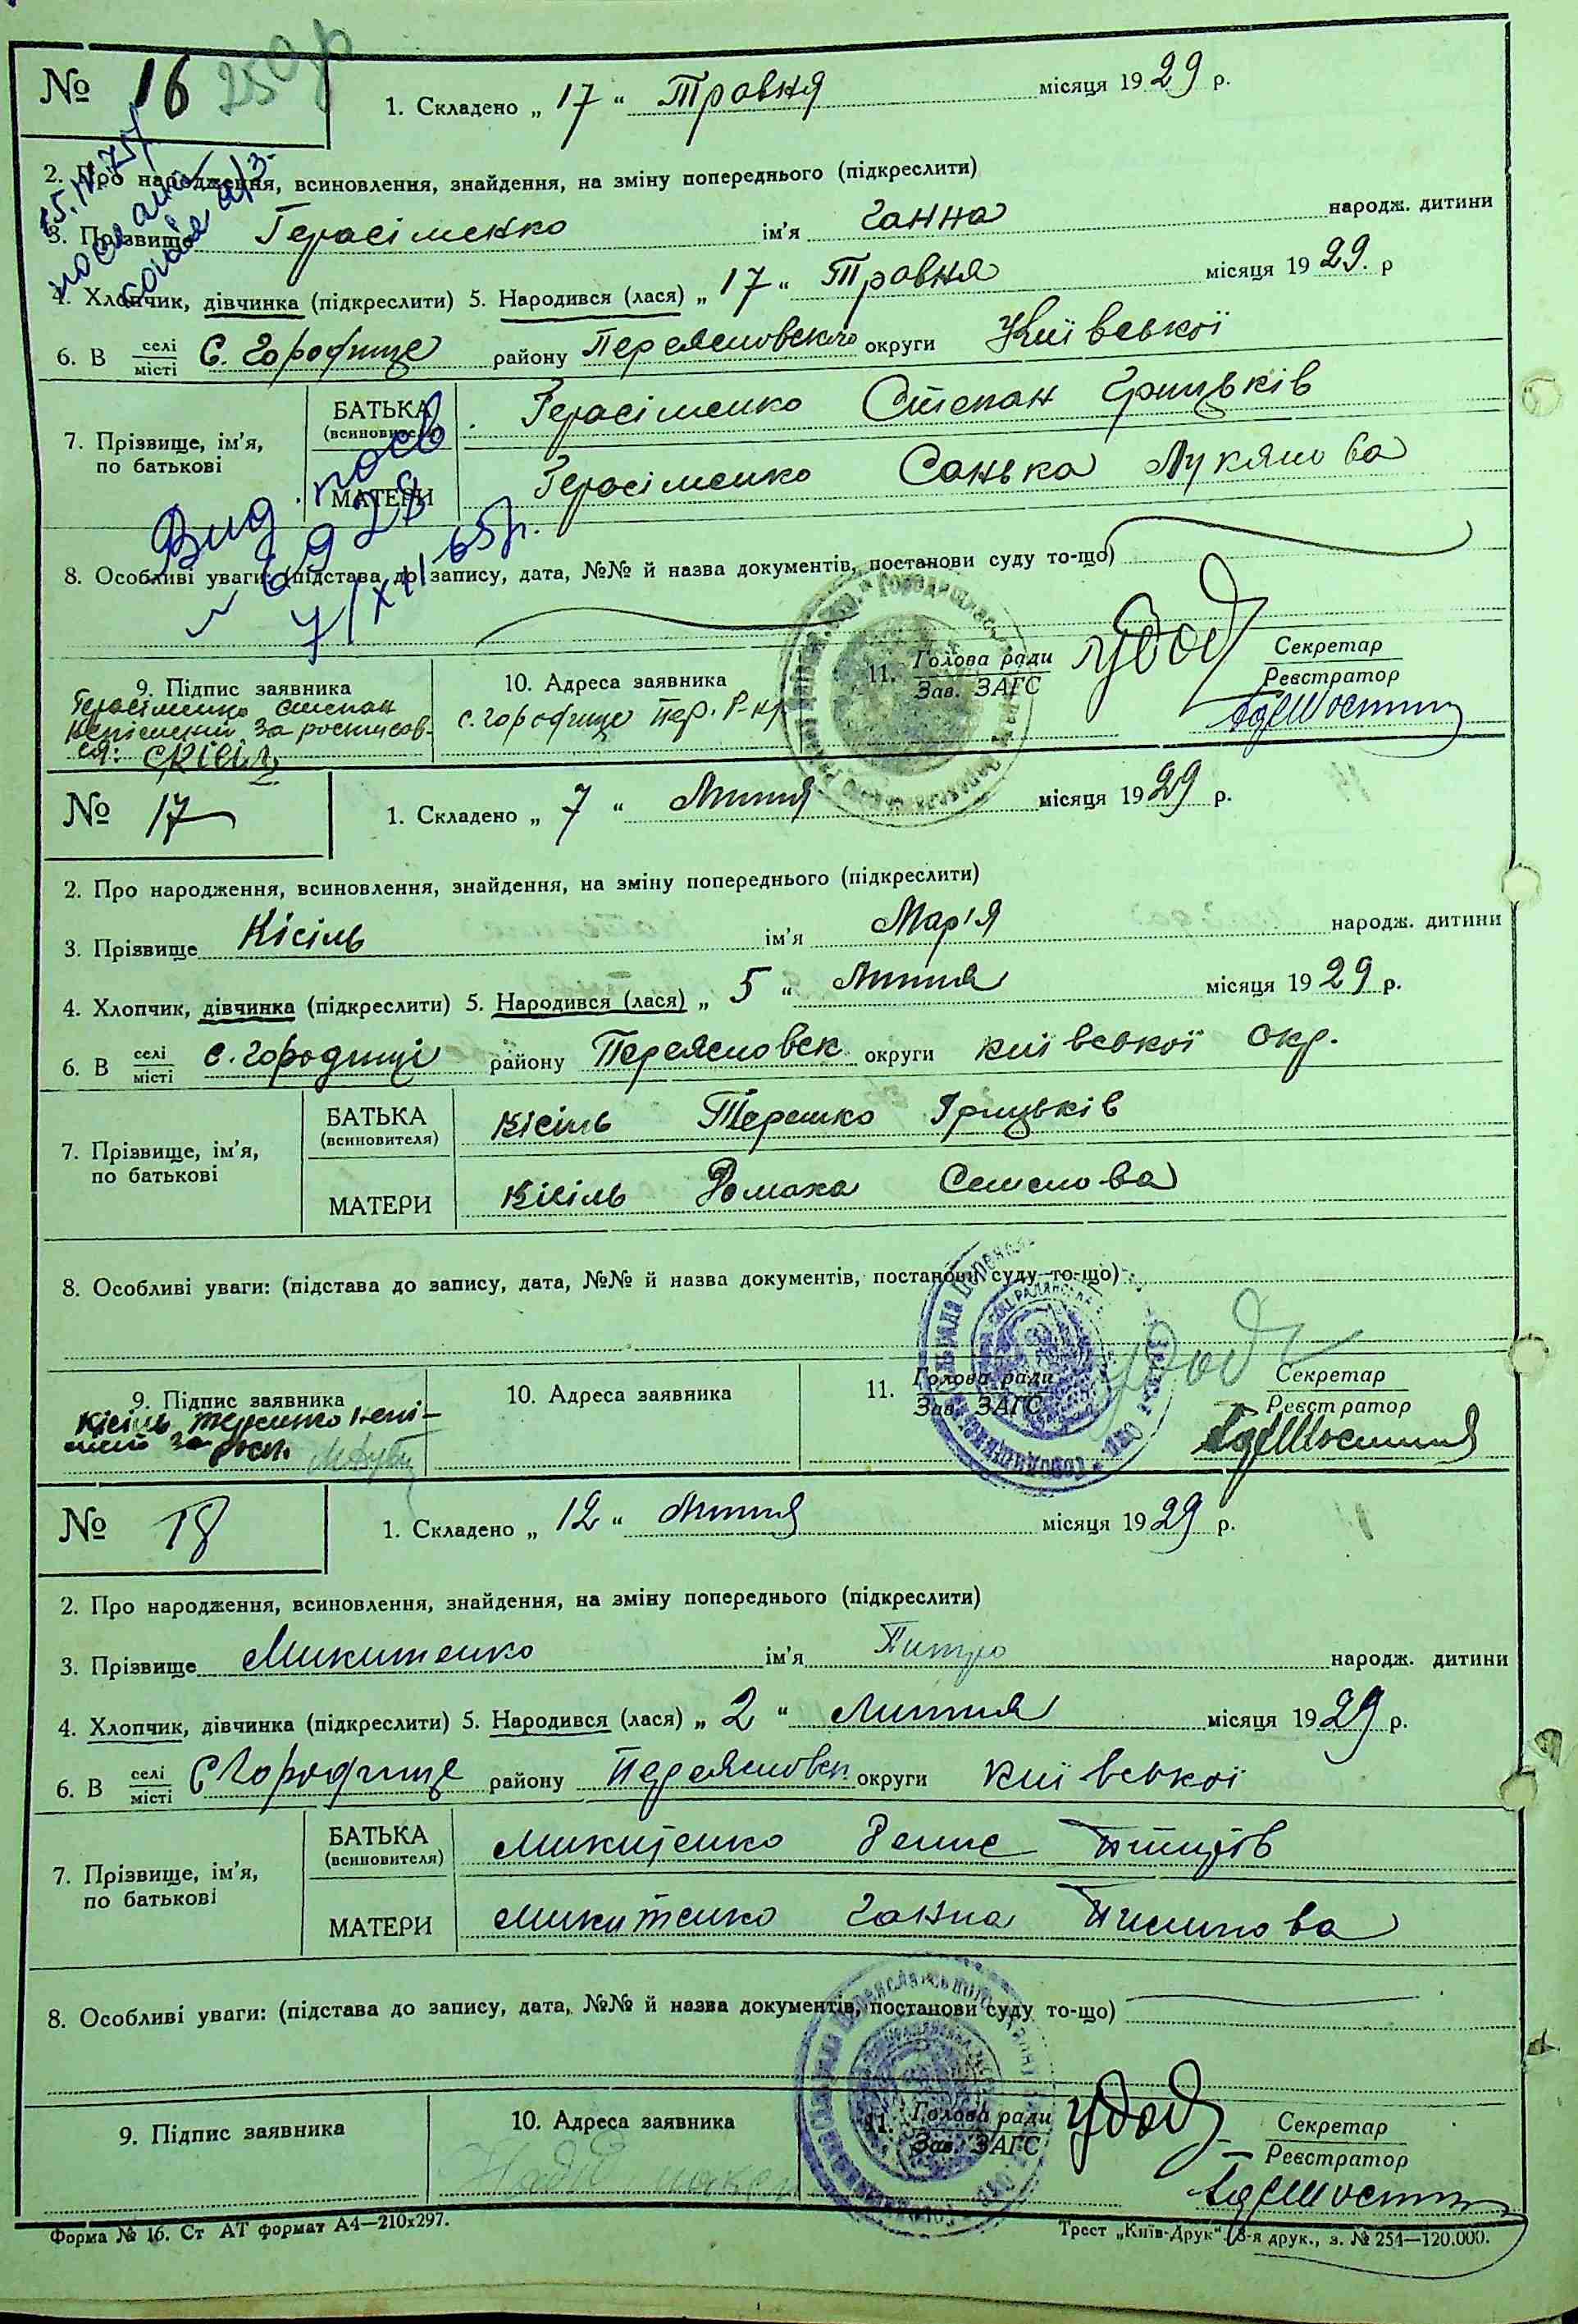 № 16 250р
1. Складено „ 17 “ Травня місяця 19 29 р.
2. Про народження, всиновлення, знайдення, на зміну попереднього (підкреслити)
3. Прізвище Герасіменко ім’я Ганна народж. дитини
4. Хлопчик, дівчинка (підкреслити) 5. Народився (лася) „ 17 “ Травня місяця 19 29. р
6. В селі місті С. Городище району Переясловского округи Київської
7. Прізвище, ім’я, по батькові
БАТЬКА (всиновителя) Герасіменко Степан Грицьків
МАТЕРИ Герасіменко Санька Лукянова
Вид. посв
7/XII 65р.
8. Особливі уваги: (підстава до запису, дата, №№ й назва документів, постанови суду то-що)
9. Підпис заявника
Герасіменко Степан
за росписов-
ся:
10. Адреса заявника
с. Городище Пер. Р-ну
11. Голова ради
Зав. ЗАГС
Удод
Секретар
Реєстратор
№ 17
1. Складено „ 7 “ Липня місяця 19 29 р.
2. Про народження, всиновлення, знайдення, на зміну попереднього (підкреслити)
3. Прізвище Кісіль ім’я Мар'я народж. дитини
4. Хлопчик, дівчинка (підкреслити) 5. Народився (лася) „ 5 “ Липня місяця 19 29 р.
6. В селі місті с. Городищі району Переясловск округи Київської окр.
7. Прізвище, ім’я, по батькові
БАТЬКА (всиновителя) Кісіль Терешко Грицьків
МАТЕРИ Кісіль Домаха Семенова
8. Особливі уваги: (підстава до запису, дата, №№ й назва документів, постанови суду то-що)
9. Підпис заявника
Кісіль Терешко
за
10. Адреса заявника
11. Голова ради
Зав. ЗАГС
Удод
Секретар
Реєстратор
№ 18
1. Складено „ 12 “ Липня місяця 19 29 р.
2. Про народження, всиновлення, знайдення, на зміну попереднього (підкреслити)
3. Прізвище Микитенко ім’я Питро народж. дитини
4. Хлопчик, дівчинка (підкреслити) 5. Народився (лася) „ 2 “ Липня місяця 19 29 р.
6. В селі місті С Городище району Переясловск. округи Київської
7. Прізвище, ім’я, по батькові
БАТЬКА (всиновителя) Микитенко Денис
МАТЕРИ Микитенко Ганна
8. Особливі уваги: (підстава до запису, дата, №№ й назва документів, постанови суду то-що)
9. Підпис заявника
10. Адреса заявника
11. Голова ради
Зав. ЗАГС
Удод
Секретар
Реєстратор
Форма № 16. Ст АТ формат А4—210x297.
Трест „Київ-Друк“. 3-я друк., з. № 254—120.000.